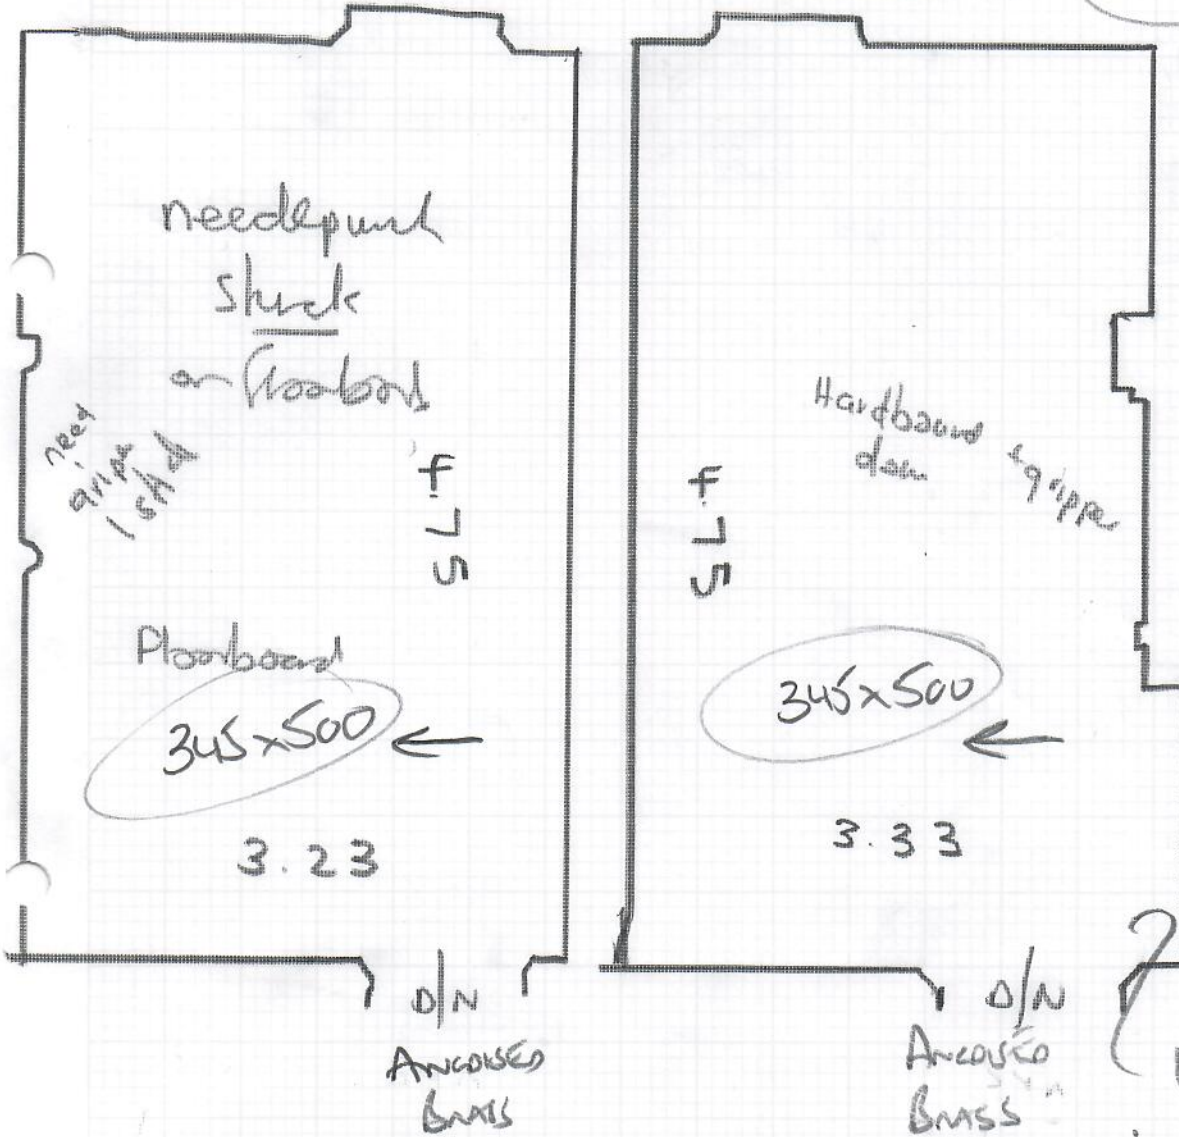 needlepunch
stuck
on floorboards
need
gripper
1 side
4.75
Floorboard
345x500
3.23
D/N
ANODISED
BRASS
Hardboard
down
& gripper
4.75
345x500
3.33
D/N
ANODISED
BRASS
?